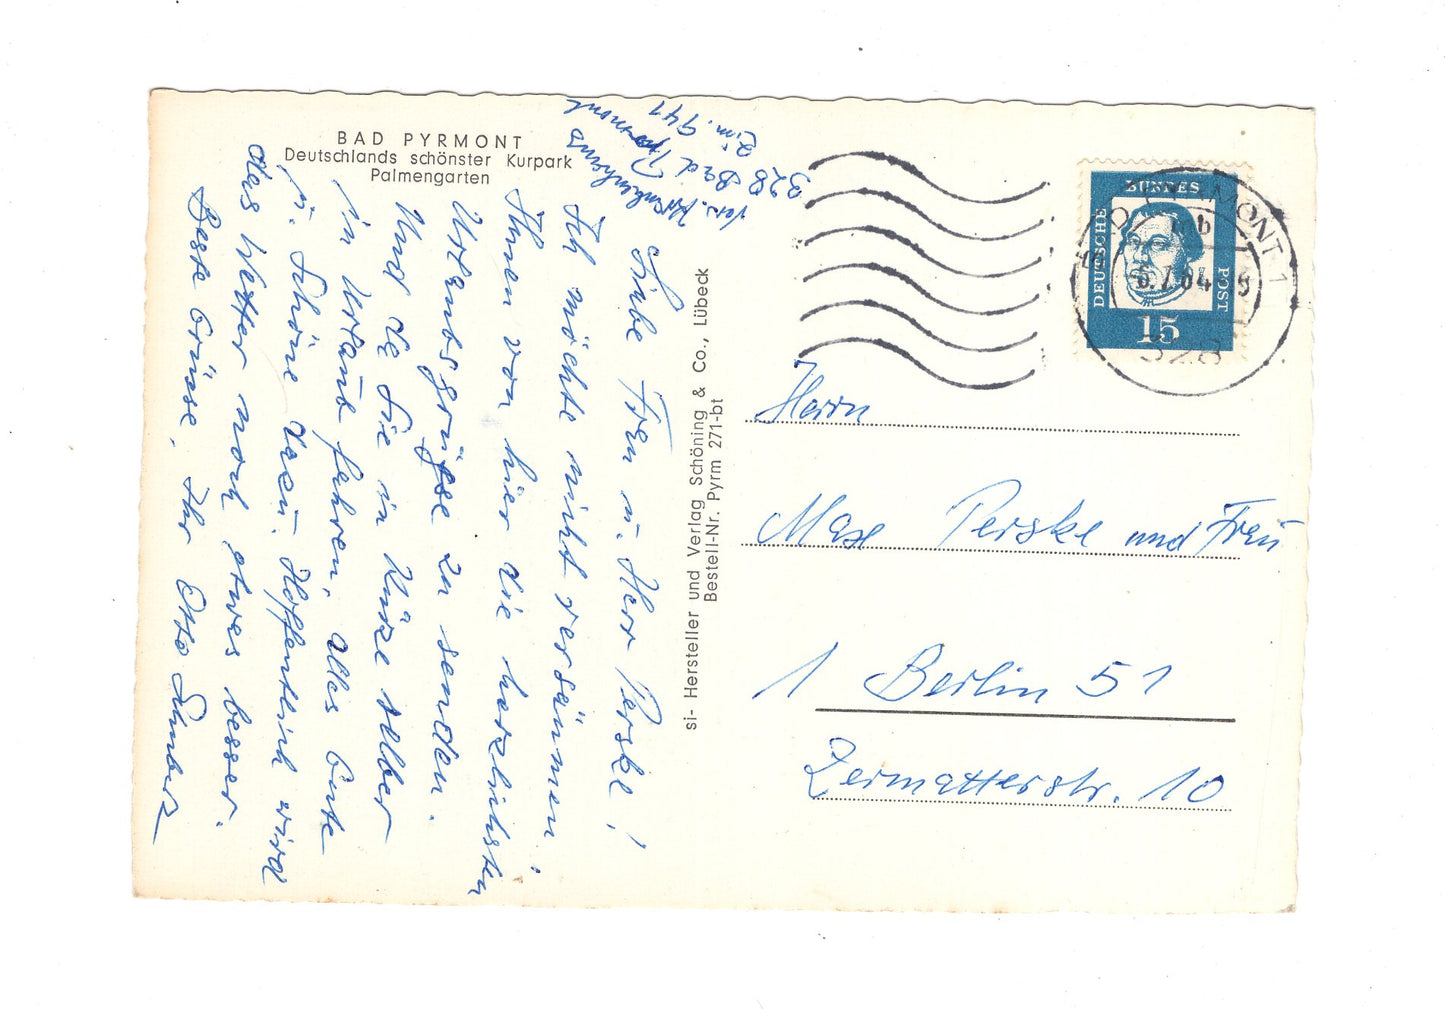 BAD PYRMONT
Deutschlands schönster Kurpark
Palmengarten
328 Bad Pyrmont
Zim. 941
Liebe Frau u. Herr Perske!
Ich möchte nicht versäumen
Ihnen von hier die herzlichsten
Urlaubsgrüße zu senden.
Und da Sie in Kürze selber
in Urlaub fahren, alles Gute
u. Schöne dazu. Hoffentlich wird
das Wetter noch etwas besser.
Beste Grüsse, Ihr Otto
si- Hersteller und Verlag Schöning & Co., Lübeck
Bestell-Nr. Pyrm 271-bt
DEUTSCHE
BUNDES
POST
15
328
Herrn
Max Perske und Frau
1 Berlin 51
Zermatterstr. 10